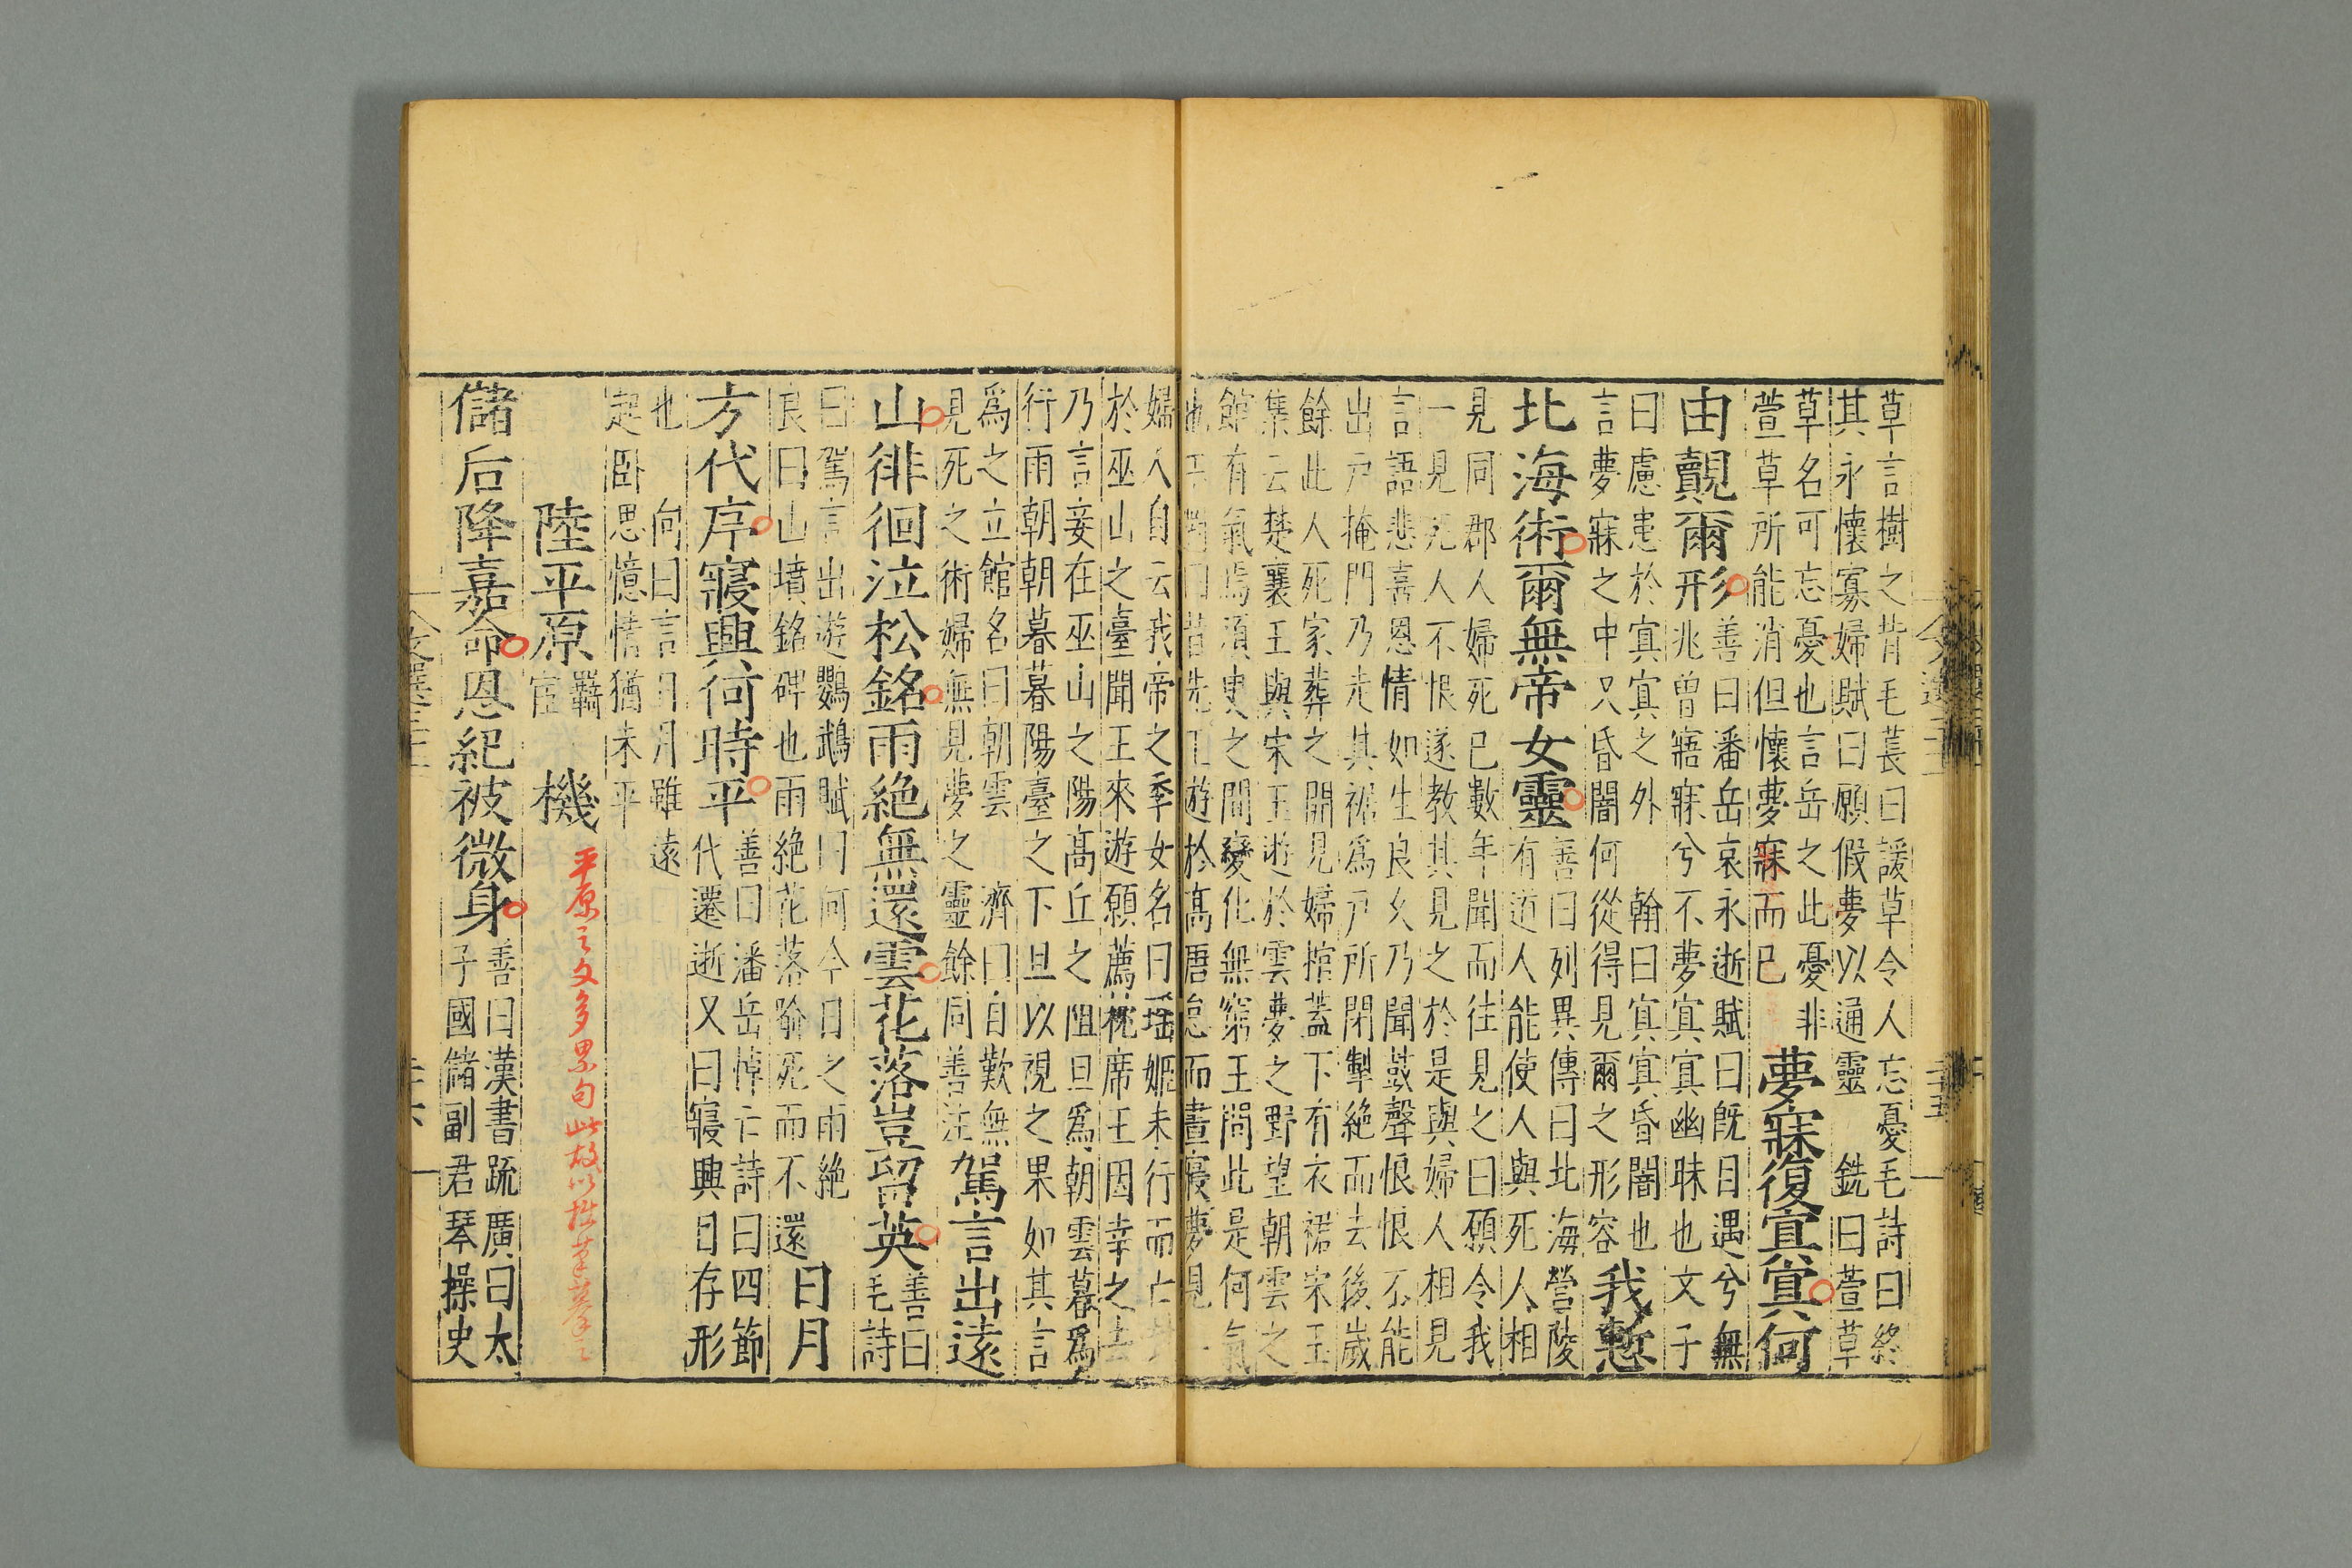 草言樹之背毛萇曰諼草令人忘憂毛詩曰終
其永懷寡婦賦曰願假夢以通靈 銑曰萱草
草名可忘憂也言岳之此憂非
萱草所能消但懷夢寐而已
夢寐復冥冥何
由覿爾形
善曰潘岳哀永逝賦曰旣目遇兮無
兆曾寤寐兮不夢冥冥幽昧也文子
曰慮患於冥冥之外 翰曰冥冥昏闇也
言夢寐之中只昏闇何從得見爾之形容
我慙
北海術爾無帝女靈
善曰列異傳曰北海營陵
有道人能使人與死人相
見同郡人婦死已數年聞而往見之曰願令我
一見死人不恨遂教其見之於是與婦人相見
言語悲喜恩情如生良久乃聞鼓聲恨恨不能
出戶掩門乃走其裾爲戶所閉掣絶而去後歲
餘此人死家葬之開見婦棺蓋下有衣裾宋玉
集云楚襄王與宋王遊於雲夢之野望朝雲之
館有氣焉須臾之間變化無窮王問此是何氣
也玉對曰昔先王遊於高唐怠而晝寢夢見一
婦人自云我帝之季女名曰瑤姬未行而亡
於巫山之臺聞王來遊願薦枕席王因幸之去
乃言妾在巫山之陽高丘之阻旦爲朝雲暮爲
行雨朝朝暮暮陽臺之下旦以視之果如其言
爲之立館名曰朝雲 濟曰自歎無
見死之術婦無見夢之靈餘同善注
駕言出遠
山徘徊泣松銘雨絶無還雲花落豈留英
善曰
毛詩
曰駕言出遊鸚鵡賦曰何今日之雨絶
良曰山墳銘碑也雨絶花落喻死而不還
日月
方代序寢興何時平
善曰潘岳悼亡詩曰四節
代遷逝又曰寢興目存形
也 向曰言日月雖遠
起卧思憶情猶未平
陸平原 羈宦 機
平原之文多累句此故以拙筆摹之
儲后降嘉命恩紀被微身
善曰漢書疏廣曰太
子國儲副君琴操史